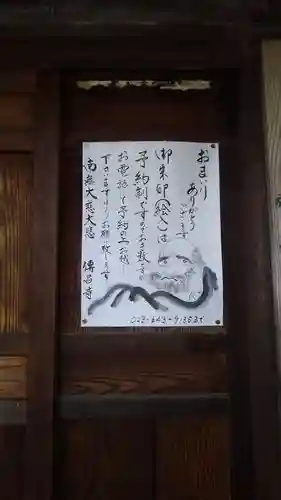 おまいり
ありがとう
ございます
御朱印(絵入)は
予約制ですのでお手数ですが
お電話にて予約の上お越し
下さいますようお願い致します
南無大慈大悲 傳昌寺